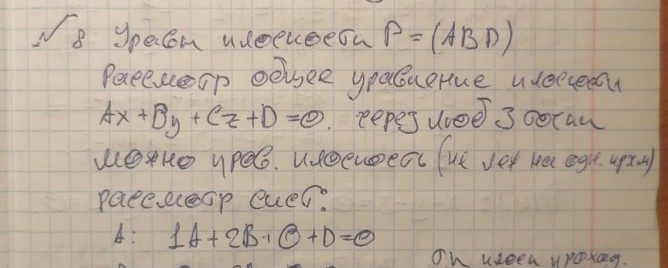 №8 Уравн плоскости P = (ABD)
Рассмотр общее уравнение плоскости
Ax + By + Cz + D = 0. через люб 3 точки
можно пров. плоскость (не леж на одн. прям)
рассмотр сист:
A: 1A + 2B + 0 + D = 0
плоск проход.